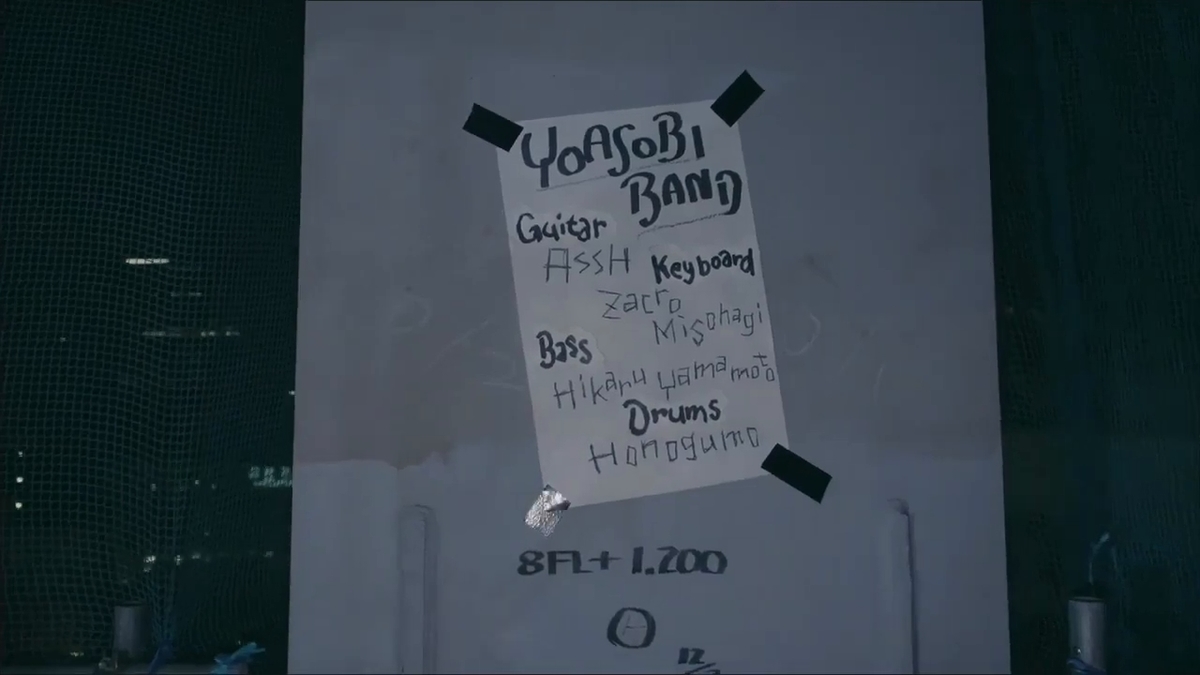 YOASOBI
BAND
Guitar
ASSH
Keyboard
Zacro
Misohagi
Bass
Hikaru Yamamoto
Drums
Honogumo
8FL+1.200
H
12